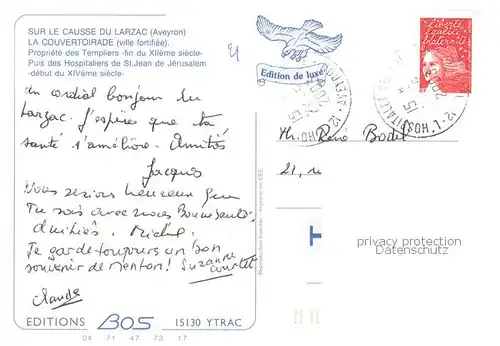 SUR LE CAUSSE DU LARZAC (Aveyron)
LA COUVERTOIRADE (ville fortifiée).
Propriété des Templiers -fin du XIIème siècle-
Puis des Hospitaliers de St.Jean de Jérusalem
-début du XIVème siècle-
un cordial bonjour du
Larzac. J'espère que ta
santé s'améliore. Amitiés
Jacques
Nous serions heureux que
Tu sois avec nous Bonne santé
amitiés. Michel.
Je garde toujours un bon
souvenir de Menton! Suzanne
Claude
EDITIONS BOS 15130 YTRAC
04 71 47 73 17
Edition de luxe
Reproduction interdite - Imprimé en CEE
liberté
égalité
fraternité
12-L'HOSPITALET
René
21,
privacy protection
Datenschutz